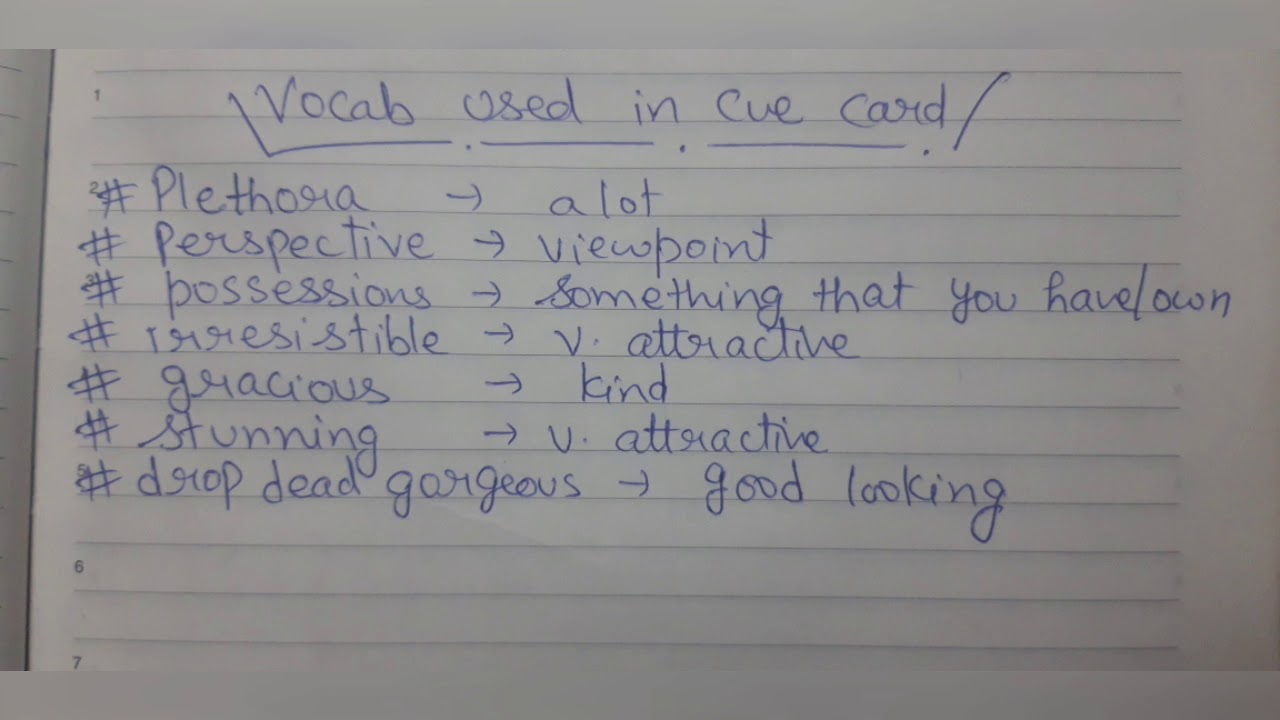 1
Vocab used in Cue Card
2
# Plethora → a lot
# Perspective → viewpoint
3
# possessions → something that you have/own
# irresistible → v. attractive
# gracious → kind
# stunning → v. attractive
5
# drop dead gorgeous → good looking
6
7